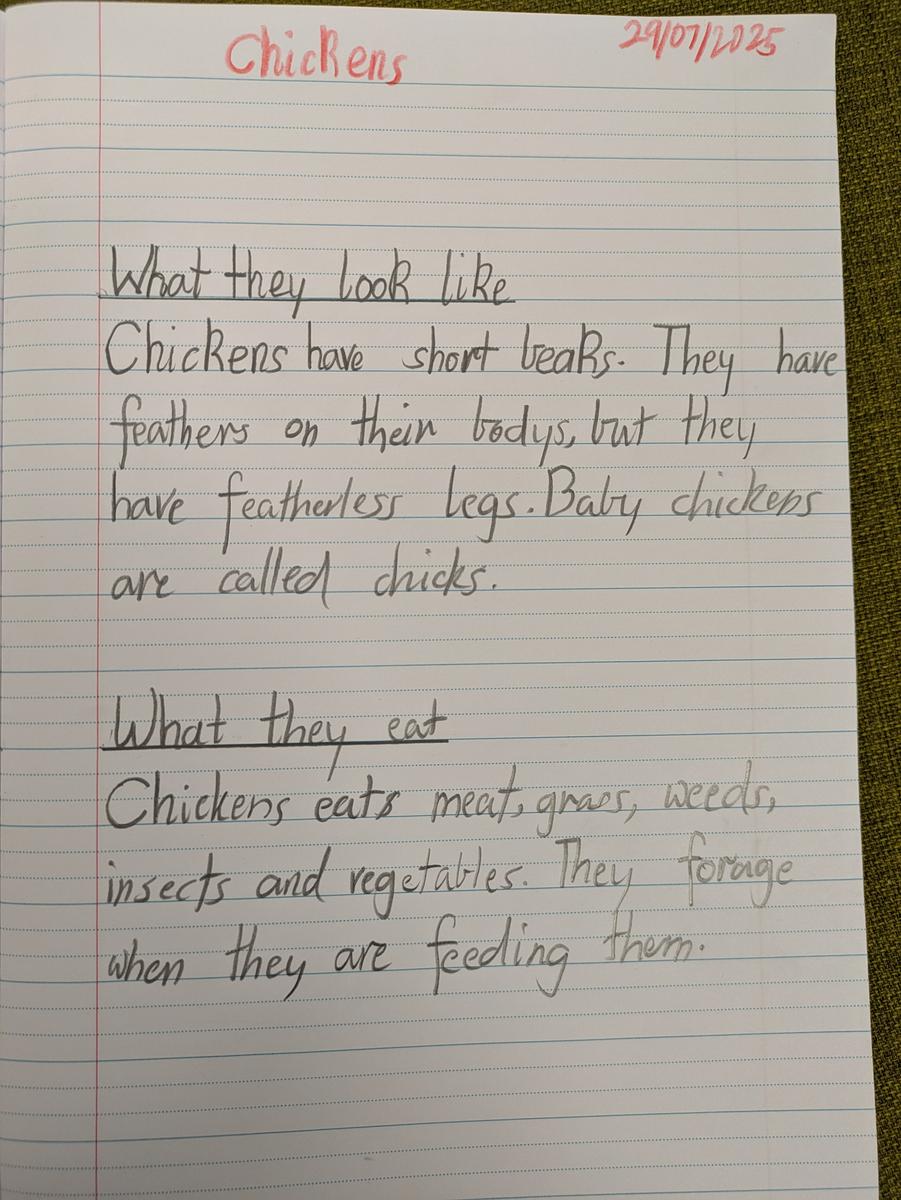 Chickens 29/07/2025
What they look like
Chickens have short beaks. They have
feathers on their bodys, but they
have featherless legs. Baby chickens
are called chicks.
What they eat
Chickens eats meat, grass, weeds,
insects and vegetables. They forage
when they are feeding them.